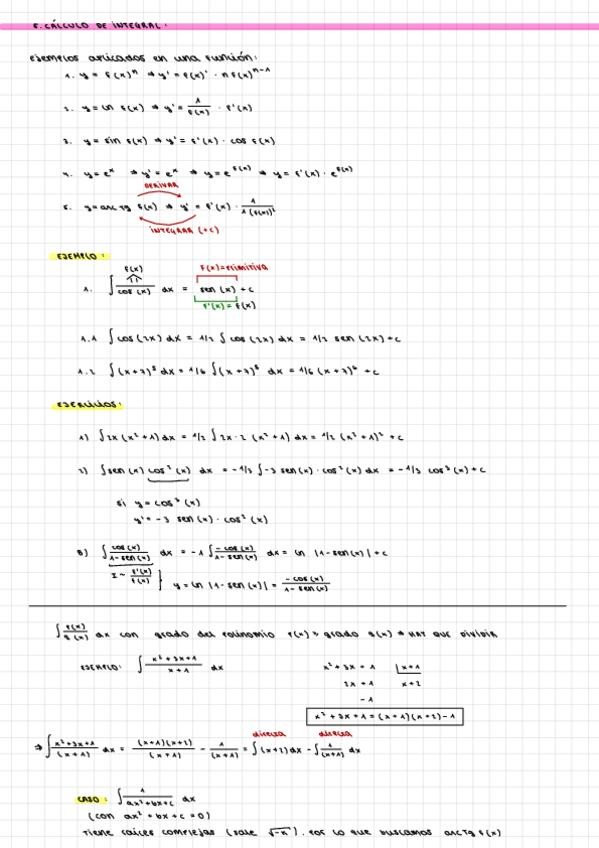 5. CÁLCULO DE INTEGRAL.
EJEMPLOS APLICADOS EN UNA FUNCIÓN:
1. y = f(x)ⁿ ⇒ y' = f(x)' · n f(x)ⁿ⁻¹
2. y = ln f(x) ⇒ y' = 1/f(x) · f'(x)
3. y = sin f(x) ⇒ y' = f'(x) · cos f(x)
4. y = eˣ ⇒ y' = eˣ ⇒ y = e^f(x) ⇒ y = f'(x) · e^f(x)
DERIVAR
5. y = arctg f(x) ⇒ y' = f'(x) · 1/1(f(x))²
INTEGRAR (+c)
EJEMPLO:
f(x) F(x)=PRIMITIVA
1. ∫ cos(x) dx = sen(x) + c
F'(x) = f(x)
1.1 ∫cos(2x) dx = 1/2 ∫ cos(2x) dx = 1/2 sen(2x)+c
1.2 ∫(x+7)⁵ dx = 1/6 ∫(x+7)⁵ dx = 1/6 (x+7)⁶ + c
EJERCICIOS:
1) ∫2x(x²+1)dx = 1/2 ∫2x·2 (x²+1)dx = 1/2 (x²+1)² + c
2) ∫sen(x) cos²(x) dx = -1/3 ∫-3 sen(x)·cos²(x) dx = -1/3 cos³(x) + c
si y = cos³(x)
y' = -3 sen(x)·cos²(x)
8) ∫ cos(x)/1-sen(x) dx = -1 ∫ -cos(x)/1-sen(x) dx = ln |1-sen(x)| + c
I ~ f'(x)/f(x) } y = ln |1-sen(x)| = -cos(x)/1-sen(x)
∫ P(x)/Q(x) dx con grado del polinomio P(x) ≥ grado Q(x) ⇒ HAY QUE DIVIDIR
EJEMPLO: ∫ x²+3x+1/x+1 dx
x² + 3x + 1 | x+1
2x + 1 x+2
-1
x² + 3x + 1 = (x+1)(x+2) - 1
directa directa
⇒ ∫ x²+3x+1/(x+1) dx = (x+1)(x+2)/(x+1) - 1/(x+1) = ∫(x+2)dx - ∫ 1/(x+1) dx
CASO: ∫ 1/ax²+bx+c dx
(con ax² + bx + c = 0)
Tiene raíces complejas (sale √-k), por lo que buscamos arctg f(x)